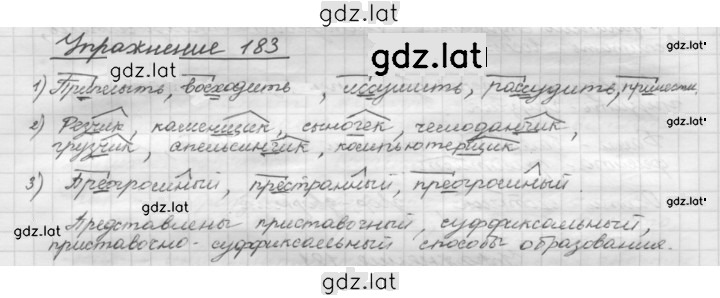 gdz.lat
Упражнение 183 gdz.lat gdz.lat
gdz.lat
1) Приплыть, восходить, иссушить, рассудить, принести,
gdz.lat
2) Резчик, каменщик, сыночек, чемоданчик, gdz.lat
грузчик, апельсинчик, компьютерщик
3) Преогромный, престранный, преогромный.
gdz.lat gdz.lat
Представлены приставочный, суффиксальный,
gdz.lat gdz.lat
приставочно-суффиксальный способы образования.
gdz.lat